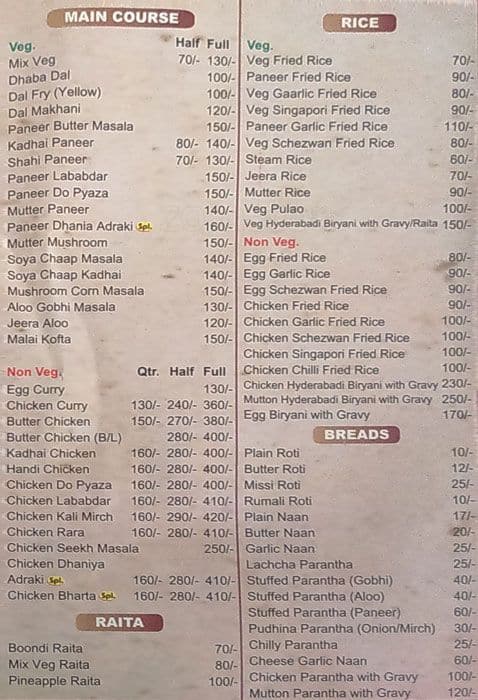 MAIN COURSE
Veg. Half Full
Mix Veg 70/- 130/-
Dhaba Dal 100/-
Dal Fry (Yellow) 100/-
Dal Makhani 120/-
Paneer Butter Masala 150/-
Kadhai Paneer 80/- 140/-
Shahi Paneer 70/- 130/-
Paneer Lababdar 150/-
Paneer Do Pyaza 150/-
Mutter Paneer 140/-
Paneer Dhania Adraki Spl. 160/-
Mutter Mushroom 150/-
Soya Chaap Masala 140/-
Soya Chaap Kadhai 140/-
Mushroom Corn Masala 150/-
Aloo Gobhi Masala 130/-
Jeera Aloo 120/-
Malai Kofta 150/-
Non Veg. Qtr. Half Full
Egg Curry 130/-
Chicken Curry 130/- 240/- 360/-
Butter Chicken 150/- 270/- 380/-
Butter Chicken (B/L) 280/- 400/-
Kadhai Chicken 160/- 280/- 400/-
Handi Chicken 160/- 280/- 400/-
Chicken Do Pyaza 160/- 280/- 400/-
Chicken Lababdar 160/- 280/- 410/-
Chicken Kali Mirch 160/- 290/- 420/-
Chicken Rara 160/- 280/- 410/-
Chicken Seekh Masala 250/-
Chicken Dhaniya
Adraki Spl. 160/- 280/- 410/-
Chicken Bharta Spl. 160/- 280/- 410/-
RAITA
Boondi Raita 70/-
Mix Veg Raita 80/-
Pineapple Raita 100/-
RICE
Veg.
Veg Fried Rice 70/-
Paneer Fried Rice 90/-
Veg Gaarlic Fried Rice 80/-
Veg Singapori Fried Rice 90/-
Paneer Garlic Fried Rice 110/-
Veg Schezwan Fried Rice 80/-
Steam Rice 60/-
Jeera Rice 70/-
Mutter Rice 90/-
Veg Pulao 100/-
Veg Hyderabadi Biryani with Gravy/Raita 150/-
Non Veg.
Egg Fried Rice 80/-
Egg Garlic Rice 90/-
Egg Schezwan Fried Rice 90/-
Chicken Fried Rice 90/-
Chicken Garlic Fried Rice 100/-
Chicken Schezwan Fried Rice 100/-
Chicken Singapori Fried Rice 100/-
Chicken Chilli Fried Rice 100/-
Chicken Hyderabadi Biryani with Gravy 230/-
Mutton Hyderabadi Biryani with Gravy 250/-
Egg Biryani with Gravy 170/-
BREADS
Plain Roti 10/-
Butter Roti 12/-
Missi Roti 25/-
Rumali Roti 10/-
Plain Naan 17/-
Butter Naan 20/-
Garlic Naan 25/-
Lachcha Parantha 25/-
Stuffed Parantha (Gobhi) 40/-
Stuffed Parantha (Aloo) 40/-
Stuffed Parantha (Paneer) 60/-
Pudhina Parantha (Onion/Mirch) 30/-
Chilly Parantha 25/-
Cheese Garlic Naan 60/-
Chicken Parantha with Gravy 100/-
Mutton Parantha with Gravy 120/-